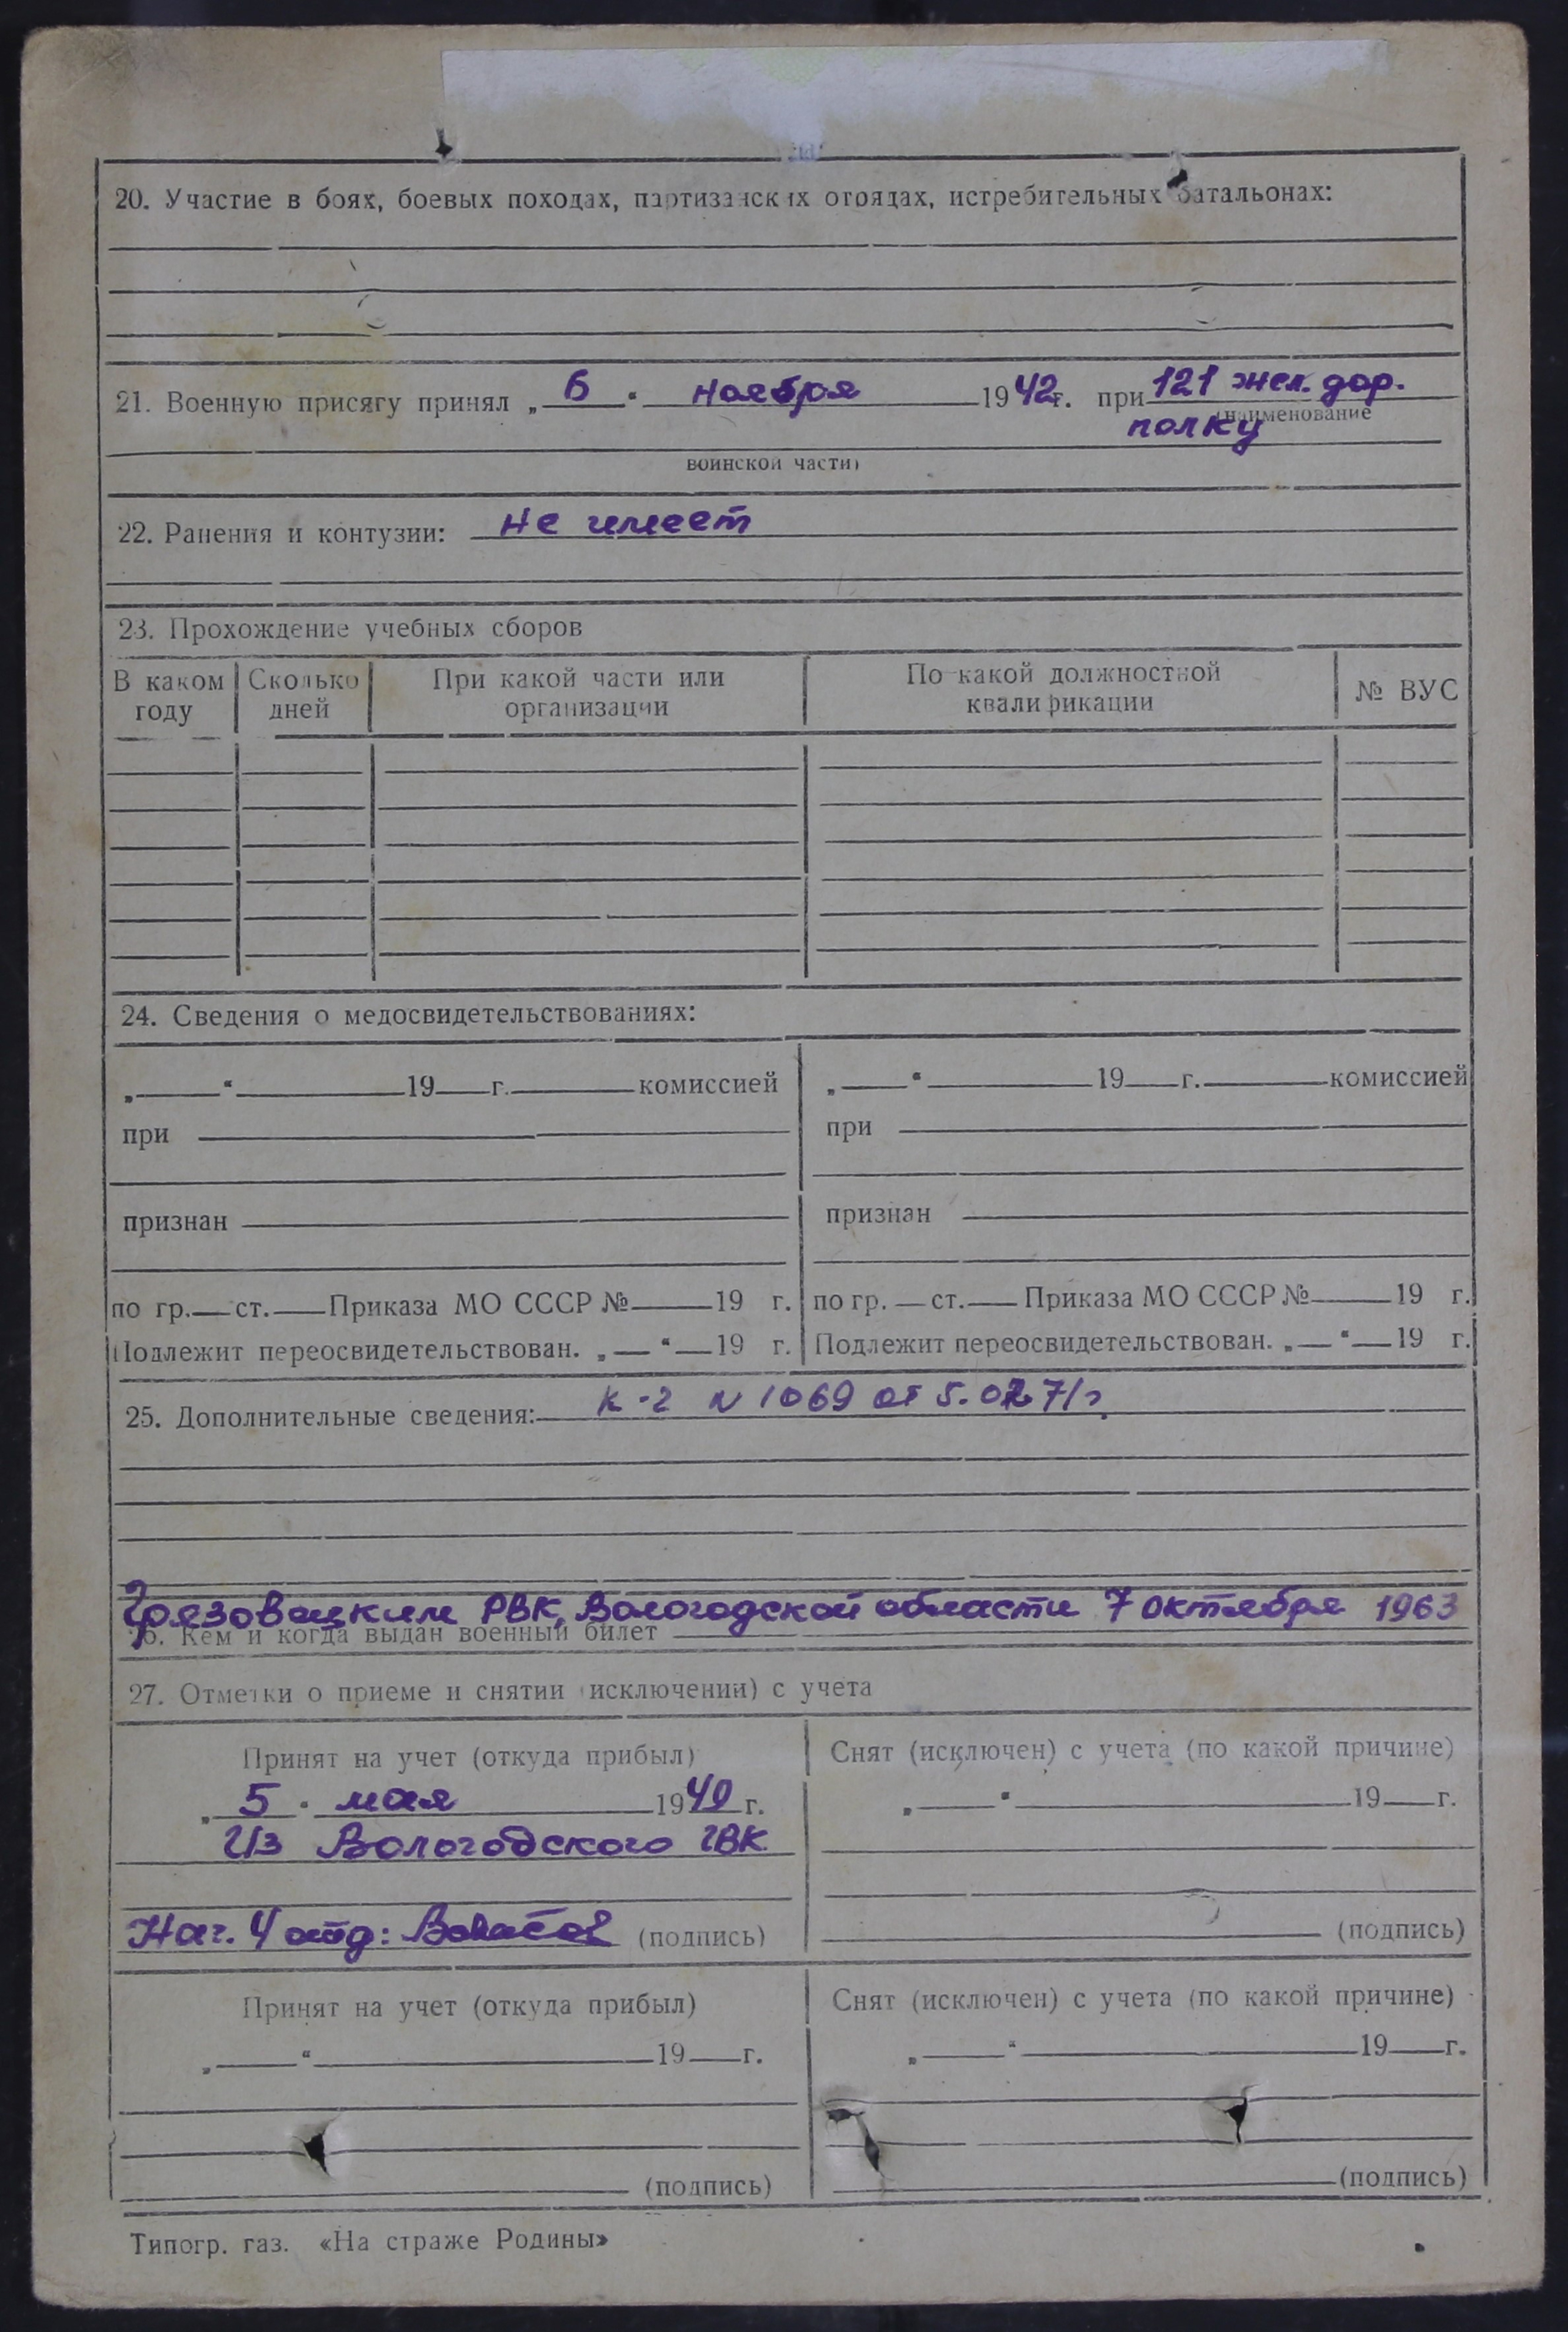 20. Участие в боях, боевых походах, партизанских отрядах, истребительных батальонах:
21. Военную присягу принял „ 6 “ ноября 1942 г. при 121 жел. дор.
(наименование
полку
воинской части)
22. Ранения и контузии: не имеет
23. Прохождение учебных сборов
В каком году Сколько дней При какой части или организации По какой должностной квалификации № ВУС
24. Сведения о медосвидетельствованиях:
„ “ 19 г. комиссией „ “ 19 г. комиссией
при при
признан признан
по гр. ст. Приказа МО СССР № 19 г. по гр. ст. Приказа МО СССР № 19 г.
Подлежит переосвидетельствован. „ “ 19 г. Подлежит переосвидетельствован. „ “ 19 г.
25. Дополнительные сведения: К-2 N 1069 от 5. 71г.
Грязовецким РВК, Вологодской области 7 октября 1963
26. Кем и когда выдан военный билет
27. Отметки о приеме и снятии (исключении) с учета
Принят на учет (откуда прибыл) Снят (исключен) с учета (по какой причине)
„ 5 “ мая 1949 г. „ “ 19 г.
Из Вологодского ГВК
Нач. 4 отд: (подпись) (подпись)
Принят на учет (откуда прибыл) Снят (исключен) с учета (по какой причине)
„ “ 19 г. „ “ 19 г.
(подпись) (подпись)
Типогр. газ. «На страже Родины»